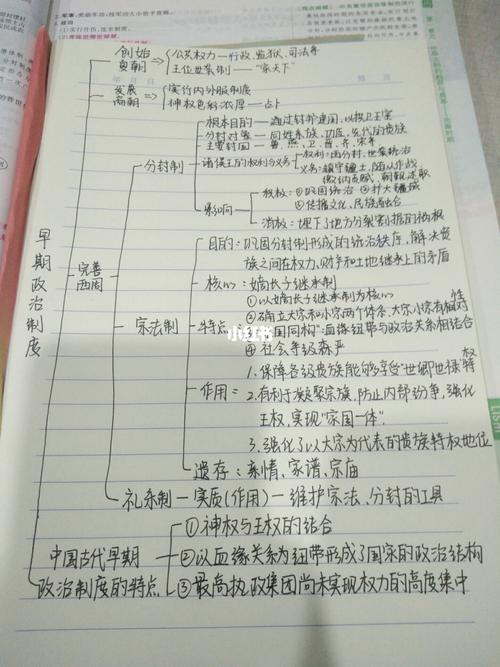 创始
夏朝
公共权力—行政、监狱、司法等
王位世袭制—“家天下”
发展
商朝
实行内外服制度
神权色彩浓厚—占卜
早期政治制度
完善
西周
分封制
根本目的—通过封邦建国,以拱卫王室
分封对象—同姓亲族、功臣、先代的贵族
主要封国—鲁、燕、卫、晋、齐、宋等
诸侯王的权利与义务
权利:再分封,世袭统治
义务:镇守疆土,随从作战
缴纳贡赋,朝觐述职
影响
积极:①巩固统治 ②扩大疆域
③传播文化,民族融合
消极:埋下了地方分裂割据的祸根
宗法制
目的:巩固分封制形成的统治秩序,解决贵
族之间在权力、财产和土地继承上的矛盾
核心:嫡长子继承制
特点
①以嫡长子继承制为核心
②确立大宗和小宗两个体系,大宗小宗有相对性
“家国同构”:血缘纽带与政治关系相结合
④社会等级森严
小红书
作用:
1.保障各级贵族能够享受“世卿世禄”特权
2.有利于凝聚宗族,防止内部纷争,强化
王权,实现“家国一体”.
3.强化了以大宗为代表的贵族特权地位
遗存:亲情、家谱、宗庙
礼乐制—实质(作用)—维护宗法、分封的工具
中国古代早期
政治制度的特点
①神权与王权的结合
②以血缘关系为纽带形成了国家的政治结构
③最高执政集团尚未实现权力的高度集中